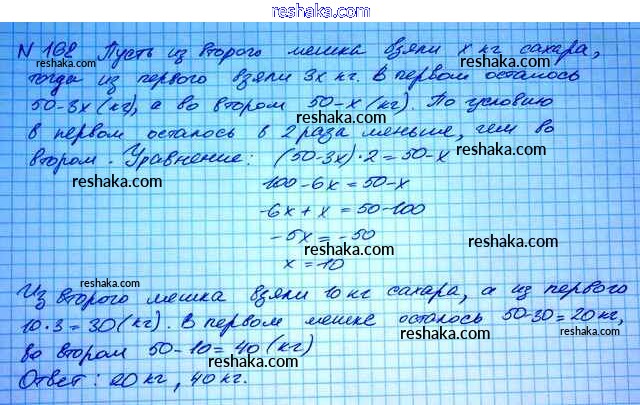 reshaka.com
N 168 Пусть из второго мешка взяли x кг сахара,
тогда из первого взяли 3x кг. В первом осталось
50-3x (кг), а во втором 50-x (кг). По условию
в первом осталось в 2 раза меньше, чем во
втором. Уравнение: (50-3x)·2=50-x
100-6x=50-x
-6x+x=50-100
-5x=-50
x=10
Из второго мешка взяли 10 кг сахара, а из первого
10·3=30(кг). В первом мешке осталось 50-30=20кг,
во втором 50-10=40(кг)
Ответ: 20кг, 40кг.
reshaka.com
reshaka.com
reshaka.com
reshaka.com
reshaka.com
reshaka.com
reshaka.com
reshaka.com
reshaka.com
reshaka.com
reshaka.com
reshaka.com
reshaka.com